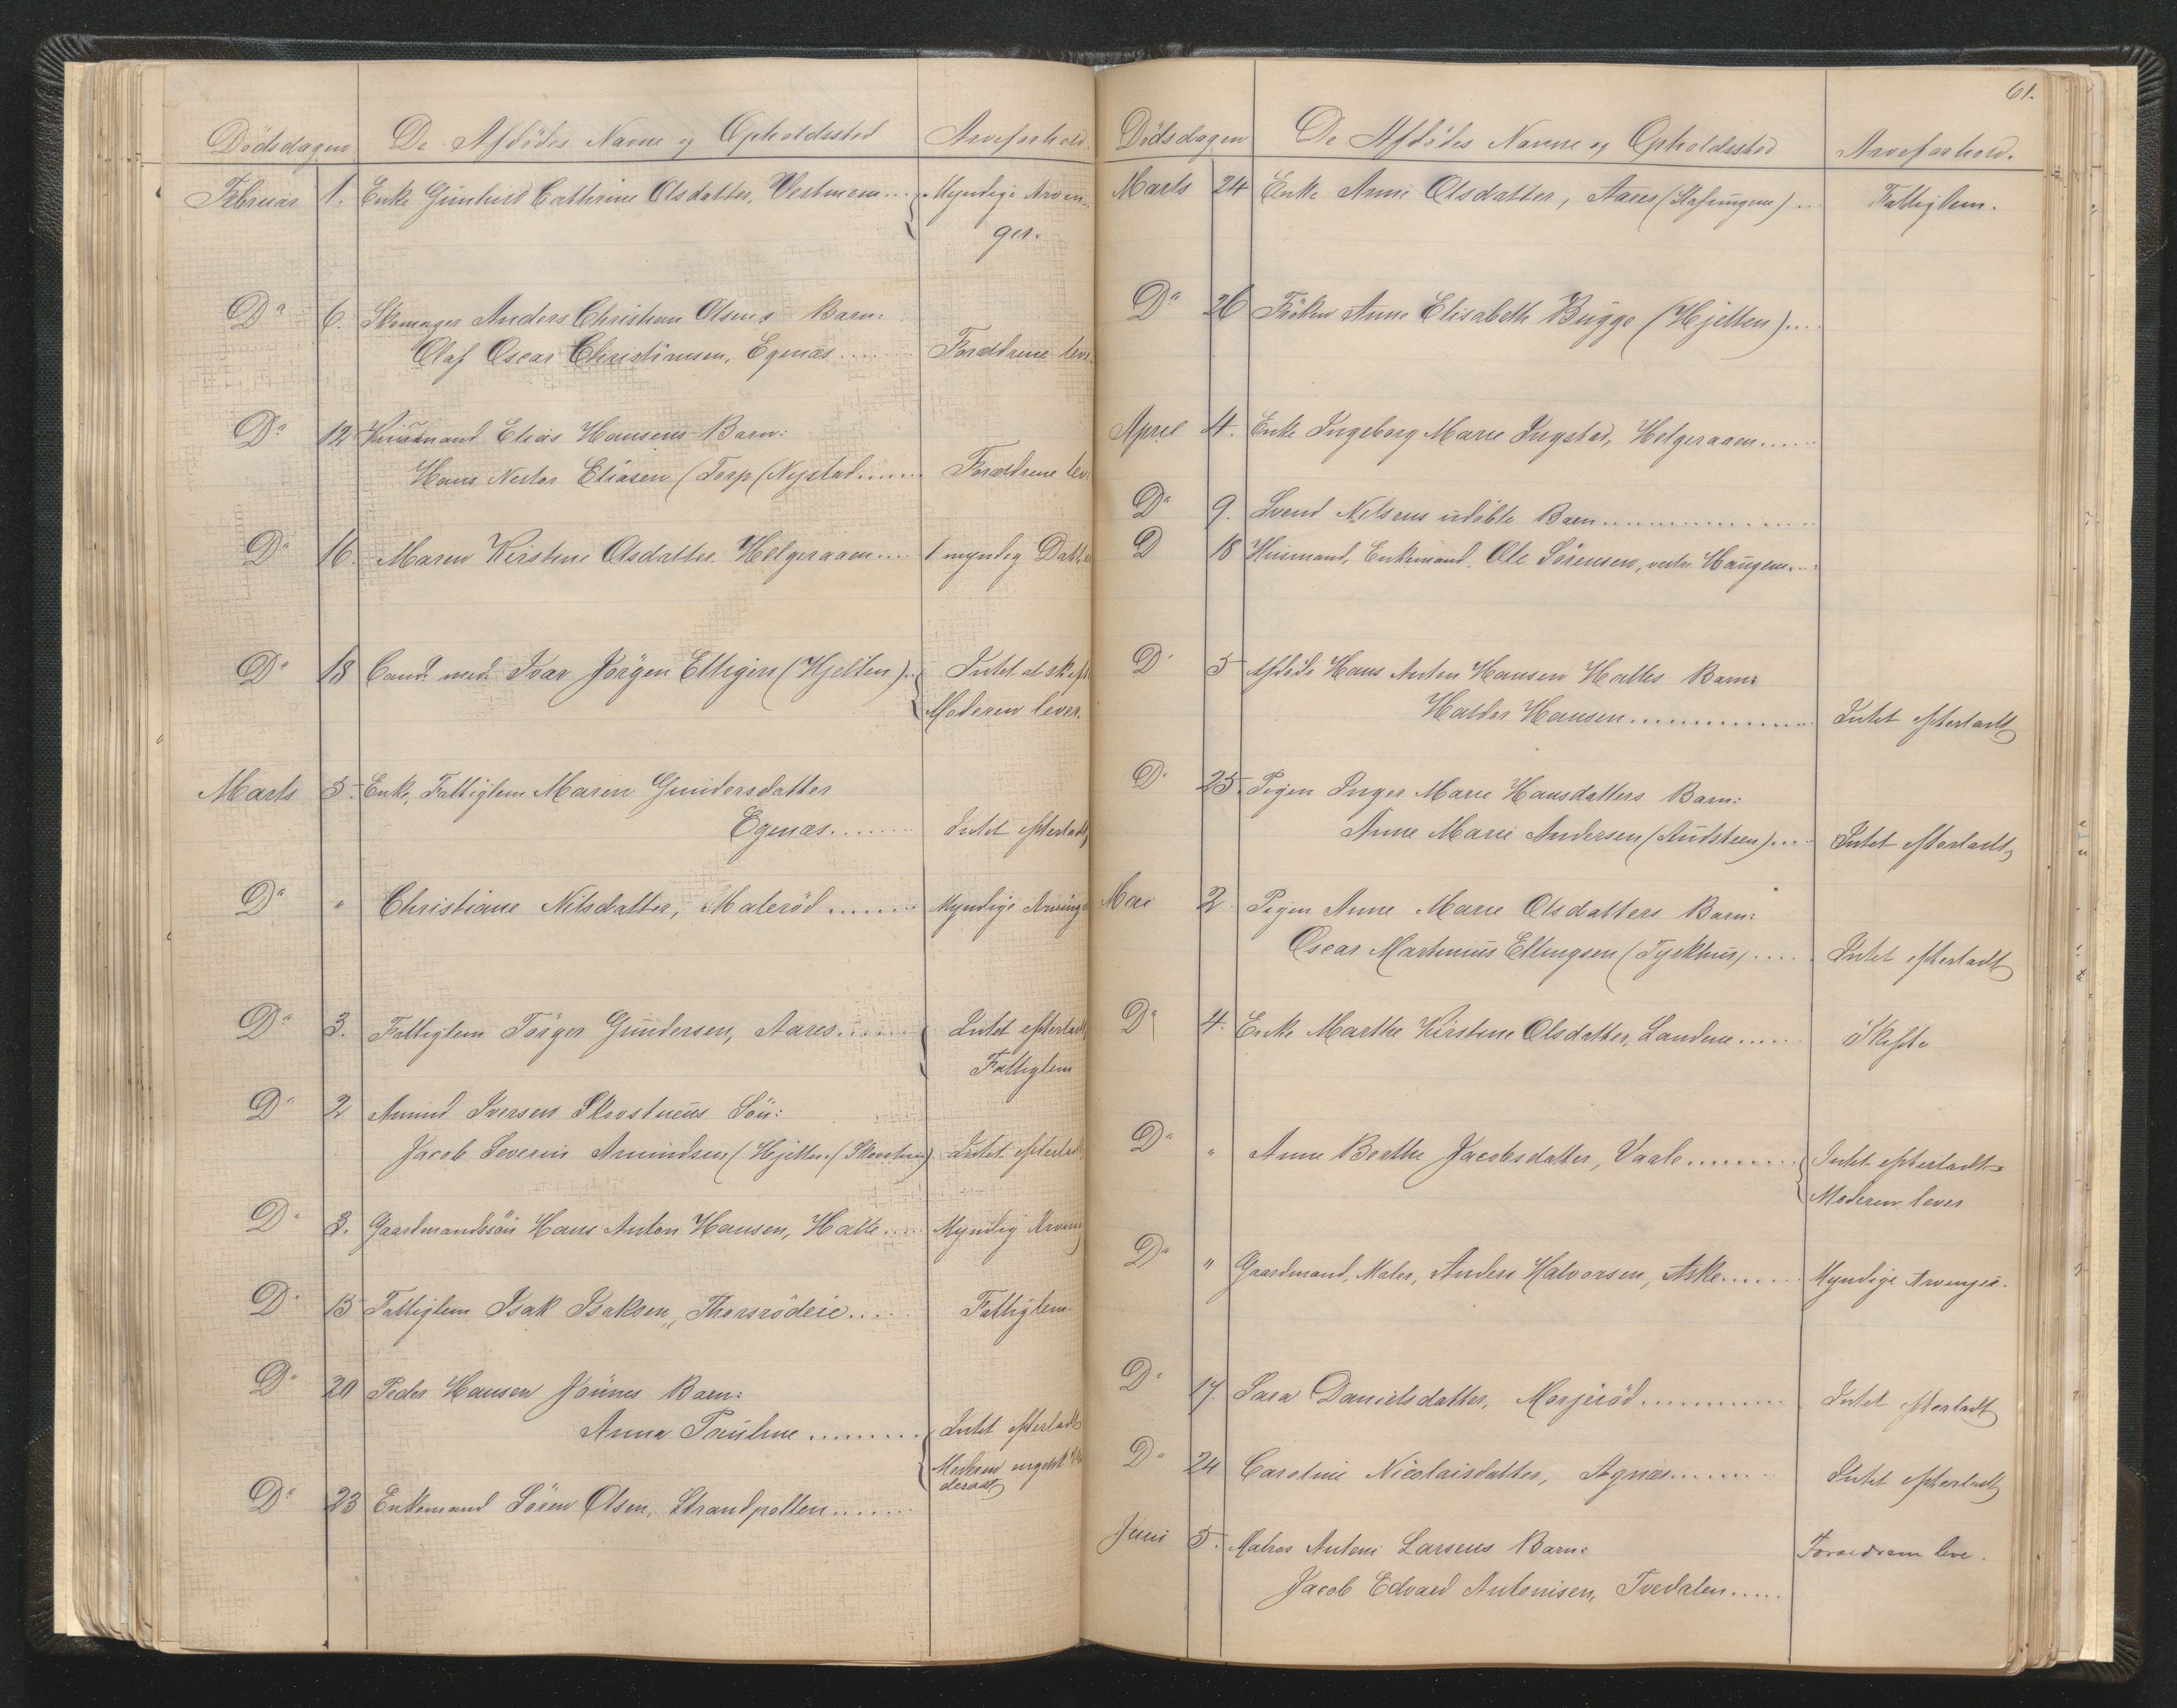 Dödsdagen De Afdödes Navne og Opholdssted Arveforhold
Februar 1. Enke Gunhild Cathrine Olsdatter, Vestmoen.... Myndige Arvin-
ger.
Do 6. Skomager Anders Christian Olsens Barn:
Olaf Oscar Christiansen, Egenæs...... Forældrene leve
Do 12 Huusmand Elias Hansens Barn:
Hans Nestor Eliasen (Torp (Nystad...... Forældrene lev
Do 16. Maren Kirstine Olsdatter. Helgeraaen.... 1 myndig Datter
Do 18 Cand. med. Ivar Jörgen Ellegers (Hjelten).. Intet at skift
Moderen lever.
Marts 5. Enke, Fattiglem Maren Gundersdatter
Egenæs....... Intet efterladt
Do " Christiane Nilsdatter, Malerød....... Myndige Arvinge
Do 3. Fattiglem Torger Gundersen, Aares...... Intet efterladt
Fattiglem
Do 2 Amund Iversen Skovstuens Sön:
Jacob Severin Amundsen (Hjelten (Skovstuen) Intet efterladt
Do 3. Gaardmandssön Hans Anton Hansen, Halle.... Myndig Arving
Do 13 Fattiglem Isak Isaksen, Thorsrödeie.... Fattiglem.
Do 20 Peder Hansen Jounes Barn:
Anna Pauline......... Intet efterladt
Moderen
Do 23 Enkemand Sören Olsen, Strandpotten......
61.
Dödsdagen De Afdödes Navne og Opholdssted Arveforhold.
Marts 24 Enke Anne Olsdatter, Aares (Stafsengen)... Fattiglem.
Do 26 Fröken Anne Elisabeth Bugge (Hjelten)....
April 4. Enke Ingeborg Marie Ingstad, Helgeraaen.....
Do 9. Svend Nilsens udöbte Barn...............
D 18 Huusmand, Enkemand, Ole Sörensen, vestre Haugene...
Do 5 Afdöde Hans Anton Hansen Halles Barn:
Haldor Hansen............... Intet efterladt
Do 25. Pigen Inger Marie Hansdatters Barn:
Anne Marie Andersen (Audsteen).... Intet efterladt
Mai 2 Pigen Anne Marie Olsdatters Barn:
Oscar Martinius Ellingsen (Tyskhus)..... Intet efterladt
Do 4. Enke Marthe Kirstine Olsdatter, Landene..... Skifte
Do " Anne Berthe Jacobsdatter, Vaale......... Intet efterladt
Moderen lever
Do " Gaardmand, Maler, Anders Halvorsen, Aske...... Myndige Arvinger.
Do 17. Sara Danielsdatter, Morjeröd............ Intet efterladt
Do 24 Caroline Nicolaisdatter, Agnæs........ Intet efterladt
Juni 5. Matros Antoni Larsens Barn: Forældrene leve.
Jacob Edvard Antonisen, Tvedalen.....